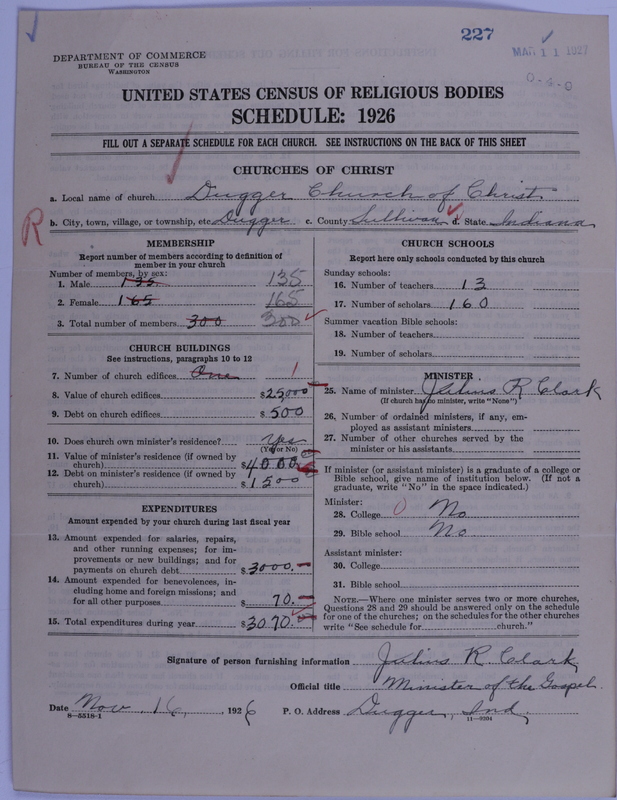 227
MAR 11 1927
0-4-0
DEPARTMENT OF COMMERCE
BUREAU OF THE CENSUS
WASHINGTON
UNITED STATES CENSUS OF RELIGIOUS BODIES
SCHEDULE: 1926
FILL OUT A SEPARATE SCHEDULE FOR EACH CHURCH. SEE INSTRUCTIONS ON THE BACK OF THIS SHEET
CHURCHES OF CHRIST
a. Local name of church Dugger Church of Christ
R
b. City, town, village, or township, etc. Dugger c. County Sullivan d. State Indiana
MEMBERSHIP
Report number of members according to definition of
member in your church
Number of members, by sex:
1. Male 135 135
2. Female 165 165
3. Total number of members 300 300
CHURCH BUILDINGS
See instructions, paragraphs 10 to 12
7. Number of church edifices One 1
8. Value of church edifices $25,000
9. Debt on church edifices $500
10. Does church own minister's residence? Yes
(Yes or No)
11. Value of minister's residence (if owned by
church) $4000
12. Debt on minister's residence (if owned by
church) $1500
EXPENDITURES
Amount expended by your church during last fiscal year
13. Amount expended for salaries, repairs,
and other running expenses; for im-
provements or new buildings; and for
payments on church debt $3000.
14. Amount expended for benevolences, in-
cluding home and foreign missions; and
for all other purposes 70.
15. Total expenditures during year $3070.
CHURCH SCHOOLS
Report here only schools conducted by this church
Sunday schools:
16. Number of teachers 13
17. Number of scholars 160
Summer vacation Bible schools:
18. Number of teachers
19. Number of scholars
MINISTER
25. Name of minister Julius R Clark
(If church has no minister, write "None")
26. Number of ordained ministers, if any, em-
ployed as assistant ministers
27. Number of other churches served by the
minister or his assistants
If minister (or assistant minister) is a graduate of a college or
Bible school, give name of institution below. (If not a
graduate, write "No" in the space indicated.)
Minister:
28. College 0 No
29. Bible school No
Assistant minister:
30. College
31. Bible school
NOTE.—Where one minister serves two or more churches,
Questions 28 and 29 should be answered only on the schedule
for one of the churches; on the schedules for the other churches
write "See schedule for church."
Signature of person furnishing information Julius R. Clark
Official title Minister of the Gospel.
Date Nov. 16, 1926 P. O. Address Dugger, Ind.
8—5518-1 11—9204